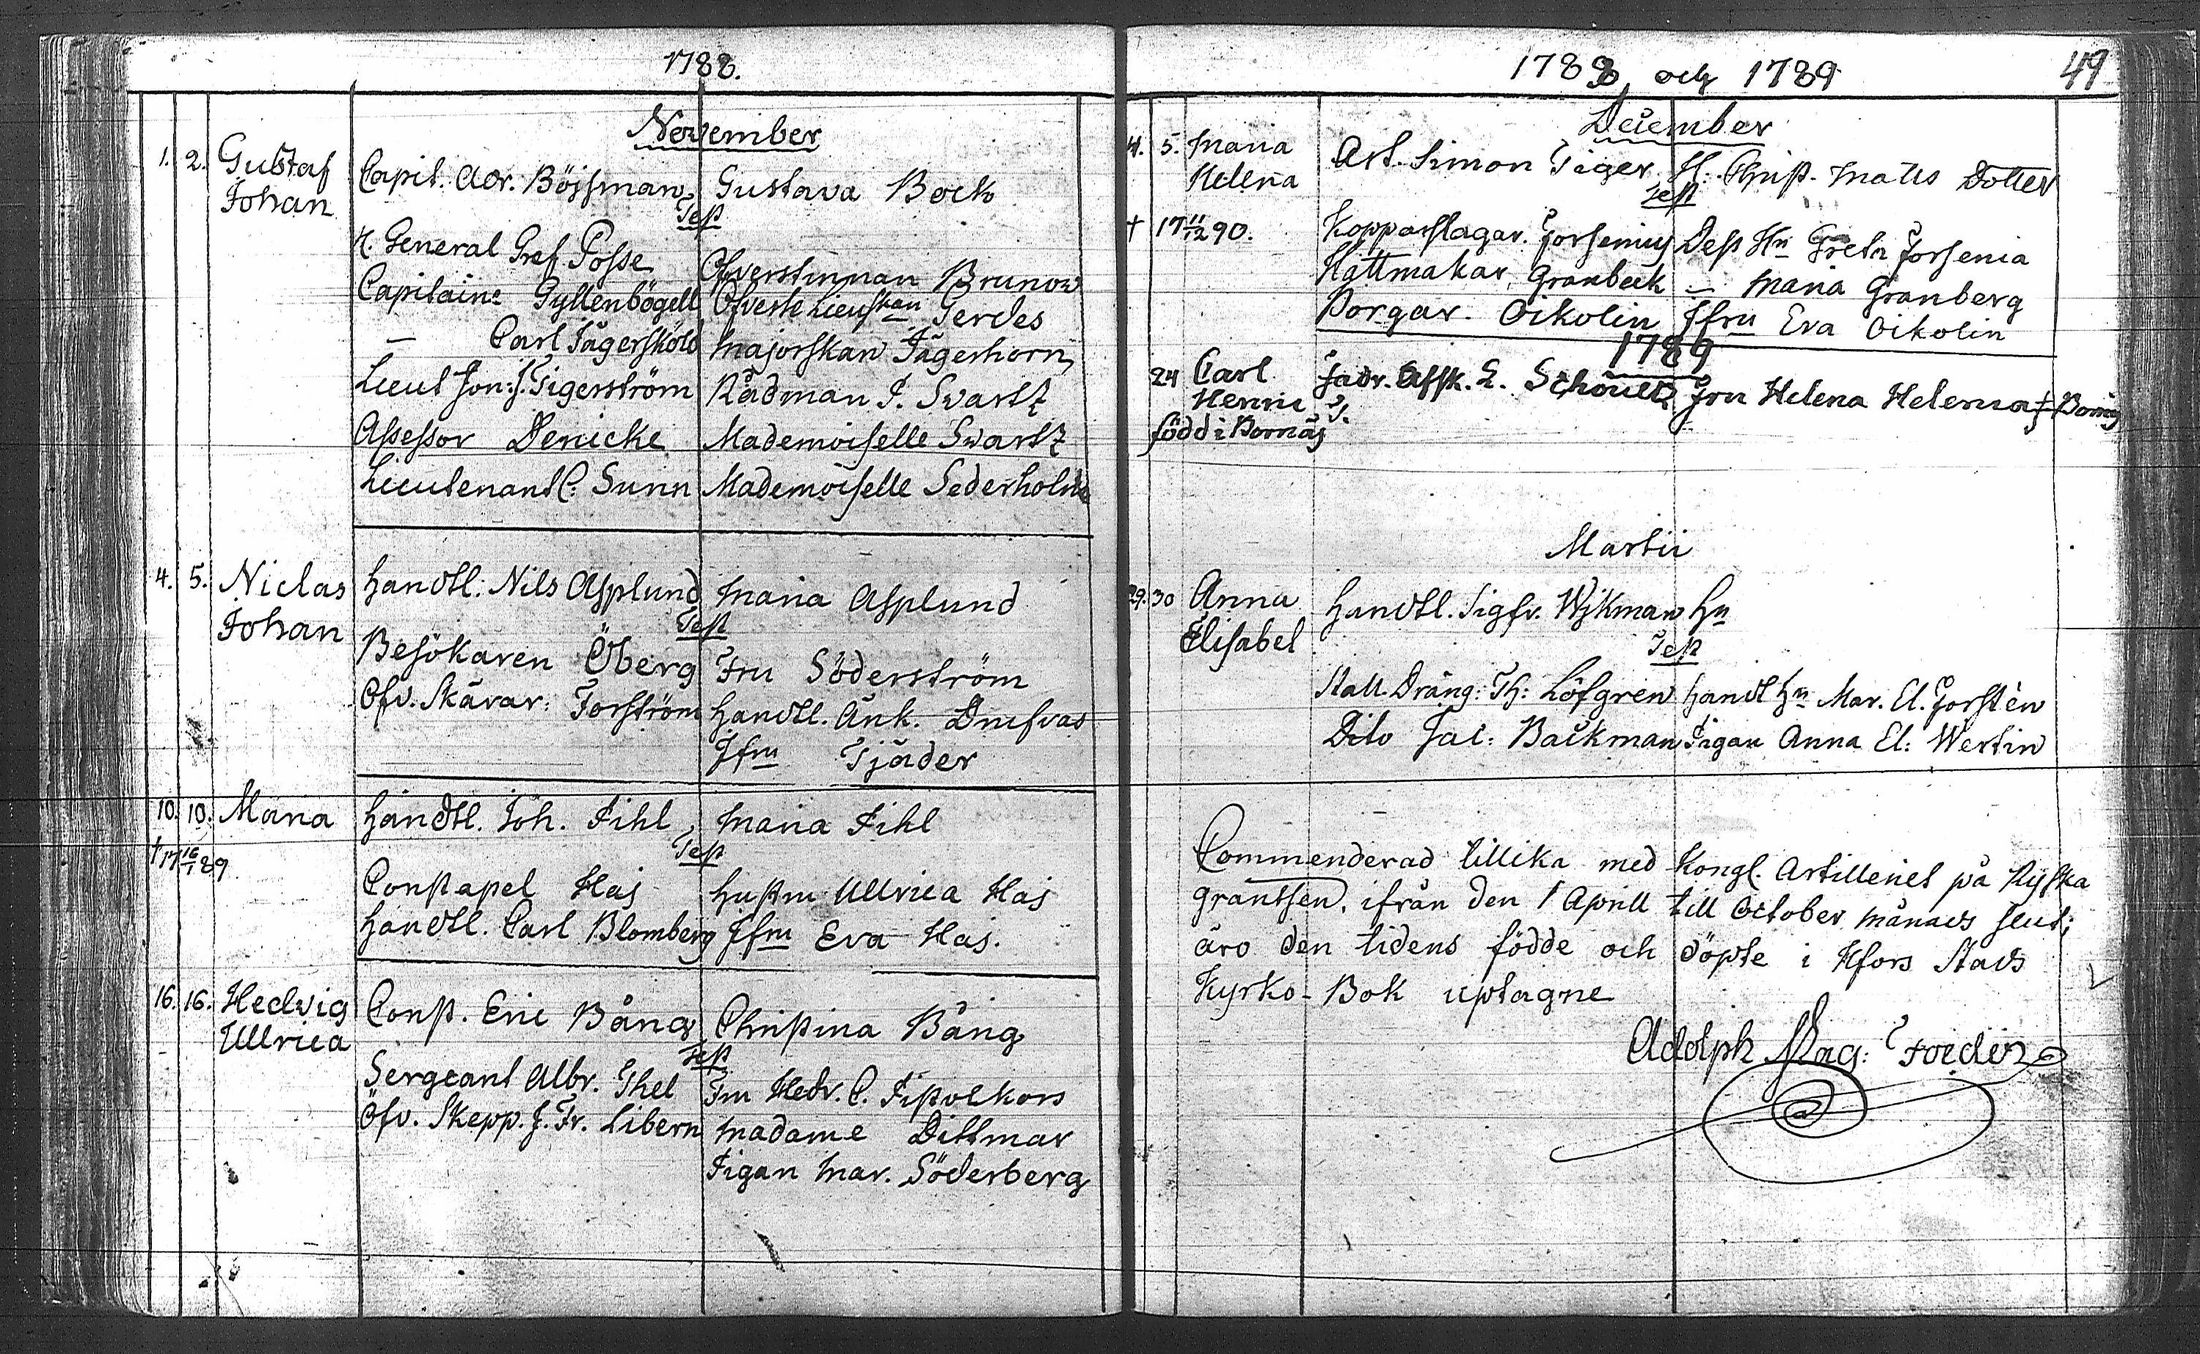 1788.
November
1. 2. Gustaf Capit. Adr. Böjsman, Gustava Bock
Johan
Test
H. General Gref Posse Öfverstinnan Brunow
Capitaine Gyllenbögell Öfverste Lieutskan Gerdes
— Carl Jägersköld Majorskan Jägerhorn
Lieut Jon: J. Tigerström Rådman J. Svartz
Assessor Denicke Mademoiselle Svartz
Lieutenant C. Sunn Mademoiselle Sederholm
4. 5. Niclas Handtl: Nils Asplund Maria Asplund
Johan
Test
Besökaren Öberg Fru Söderström
Öfv. Skärar: Forström Handtl. Änk. Drufvas
Jfru Tjäder
10. 10. Maria Handtl. Joh. Fihl, Maria Fihl
† 17 16/1 89
Test
Constapel Haj Hustru Ullrica Haj
Handtl. Carl Blomberg Jfru Eva Haj.
16. 16. Hedvig Const. Eric Bång Christina Bång
Ullrica
Test
Sergeant Albr. Thel Fru Hedr. C. Fistolkors
Öfv. Skepp. J. Fr. Libern Madame Dittmar
Pigan Mar. Söderberg
1788, och 1789 49
December
4. 5. Maria Art. Simon Tiger H. Christ. Matts Dotter
Helena
Test
† 17 11/12 90. Kopparslagar. Forsenius Dess Hu Greta Forsenia
Hattmakar, Granbeck — Maria Granberg
Borgar. Oikolin Jfru Eva Oikolin
1789
24 Carl Fadr. Affsk. L. Schoultz Fru Helena
Henric
född i Bornäs
Martii
29. 30 Anna Handtl. Sigfr. Wijkman Hu
Elisabet
Test
Stall. Dräng: Th: Löfgren Handl Hu Mar. El. Forstén
Dito Jac: Backman Pigan Anna El: Wertin
Commenderad tillika med Kongl. Artilleriet på Ryska
gräntsen, ifrån den 1 Aprill till October månads slut;
äro den tidens födde och döpte i Hfors Stads
Kyrko-Bok uptagne
Adolph Mag: